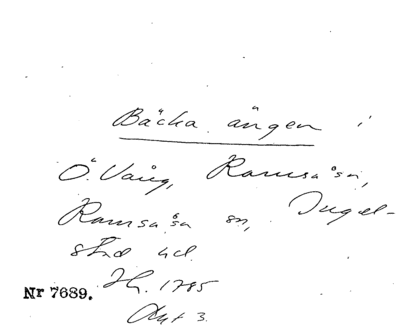 Bäcka ängen i
Ö. Vång, Ramsåsa,
Ramsåsa sn, Ingel-
stad hd.
Nr 7689. Jh. 1785
Akt 3.